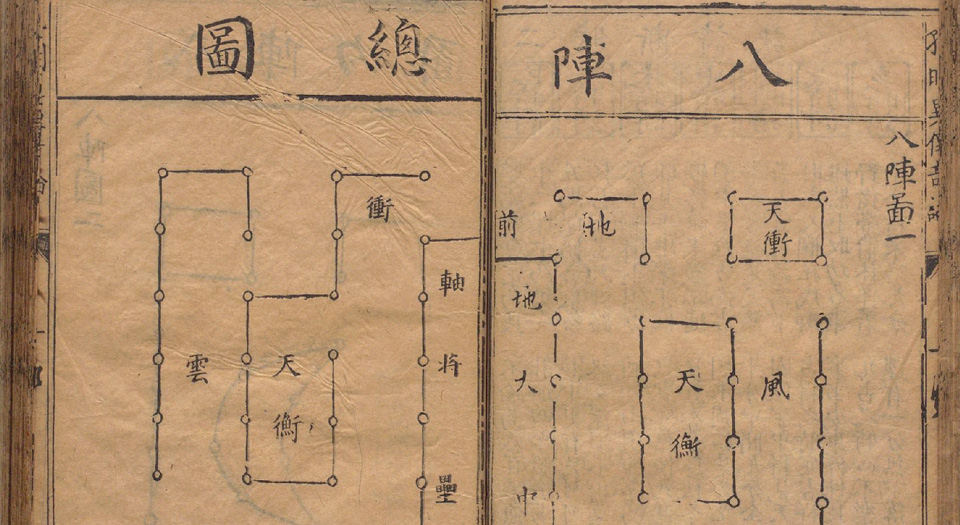 八陣
八陣啚一
天衝
風
天衡
地
地大中
前
總圖
軸将壘
衝
天衡
雲